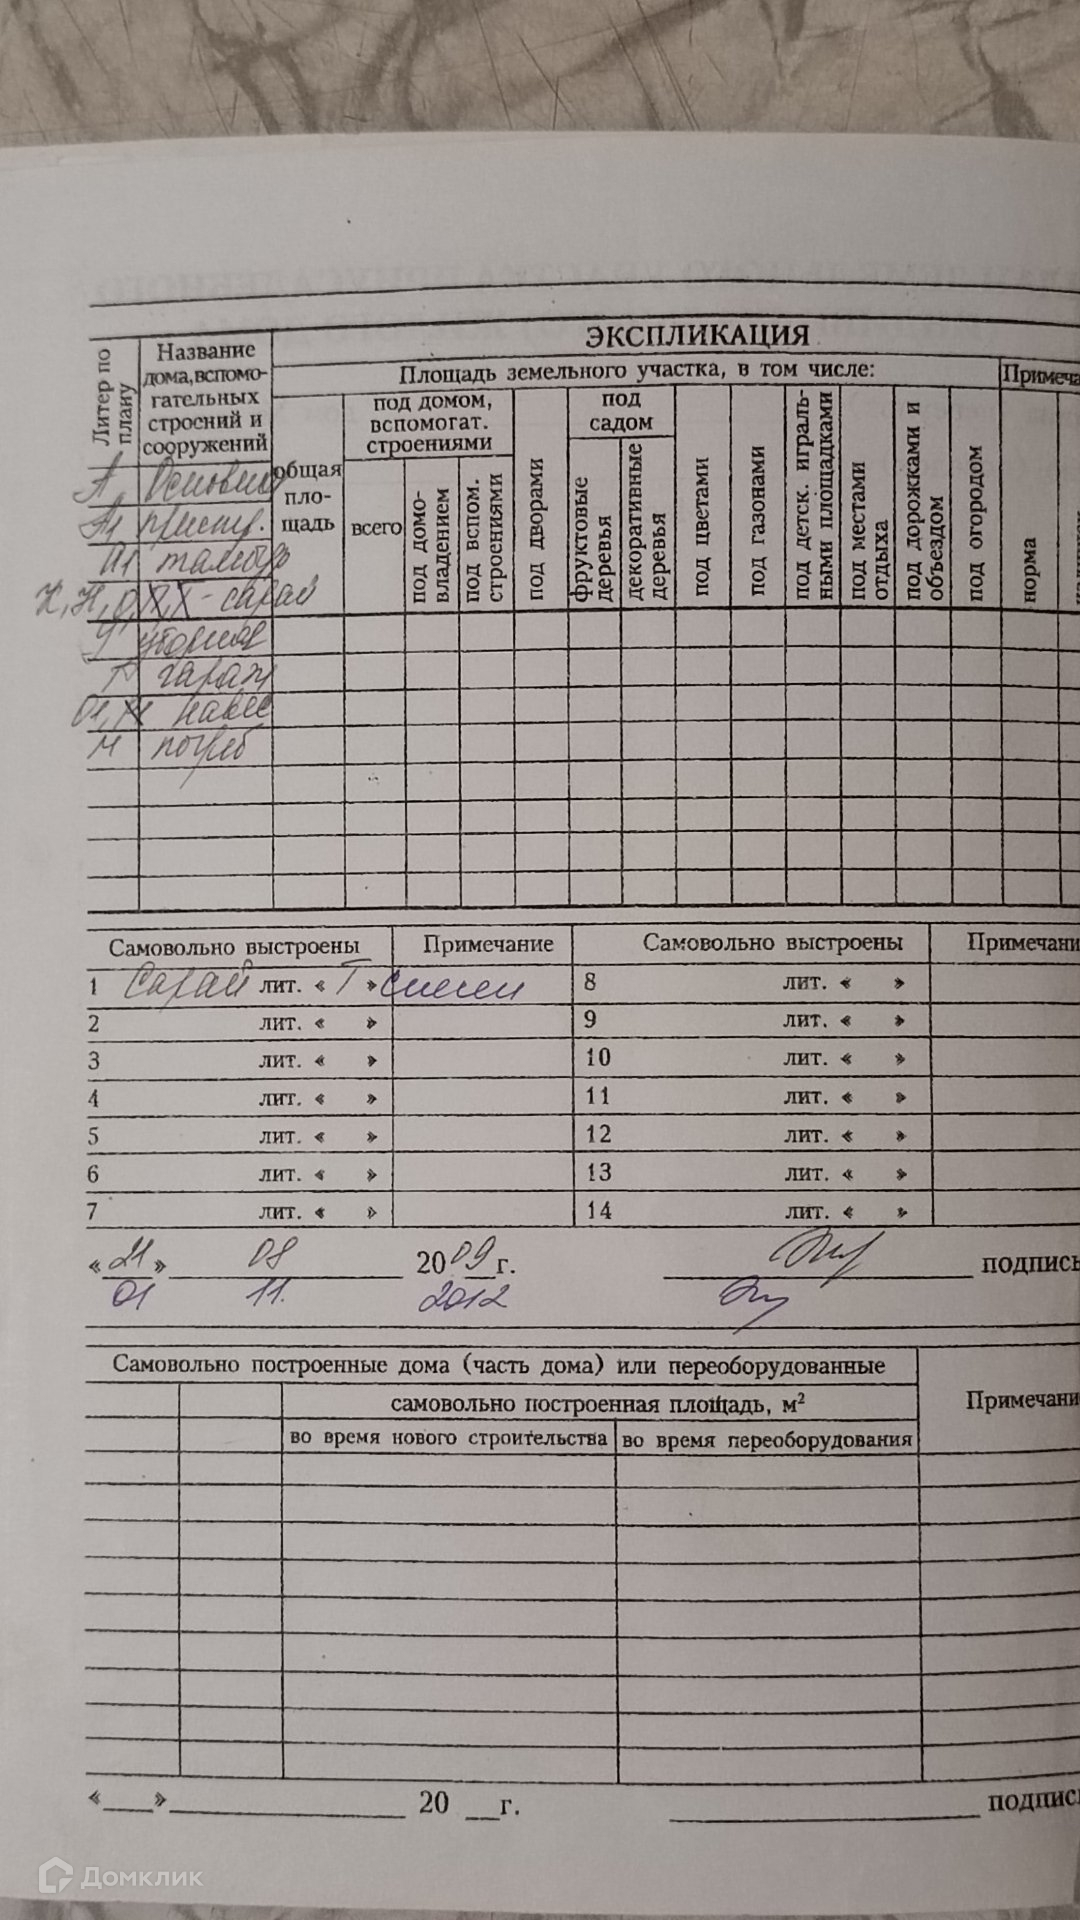 ЭКСПЛИКАЦИЯ
Литер по плану
Название
дома, вспомо-
гательных
строений и
сооружений
Площадь земельного участка, в том числе:
Примеча
общая
пло-
щадь
под домом,
вспомогат.
строениями
всего
под домо-
владением
под вспом.
строениями
под дворами
под
садом
фруктовые
деревья
декоративные
деревья
под цветами
под газонами
под детск. играль-
ными площадками
под местами
отдыха
под дорожками и
объездом
под огородом
норма
А, Основно
А1 пристр.
тамбур
сарай
У уборная
Г гараж
О1, навес
м погреб
Самовольно выстроены Примечание Самовольно выстроены Примечани
1 Сарай лит. « Т » снесен 8 лит. « »
2 лит. « » 9 лит. « »
3 лит. « » 10 лит. « »
4 лит. « » 11 лит. « »
5 лит. « » 12 лит. « »
6 лит. « » 13 лит. « »
7 лит. « » 14 лит. « »
« 21 » 08 2009 г. подпись
01 11. 2012
Самовольно построенные дома (часть дома) или переоборудованные
самовольно построенная площадь, м²
Примечани
во время нового строительства во время переоборудования
«___» 20 __г. подпись
Домклик